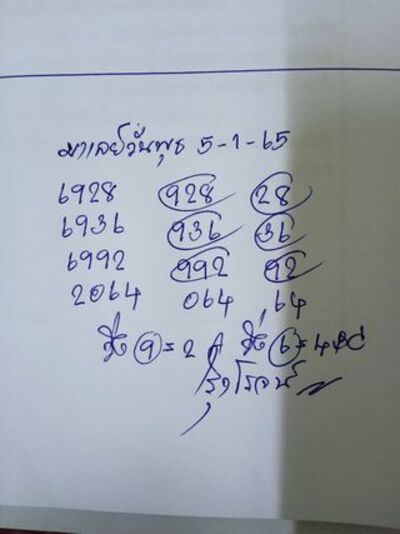 มาเลย์วันพุธ 5-1-65
6928 928 28
6936 936 36
6992 992 92
2064 064 64
วิ่ง 9 = 2 ตัว วิ่ง 6 = 4
รุ่งโรจน์